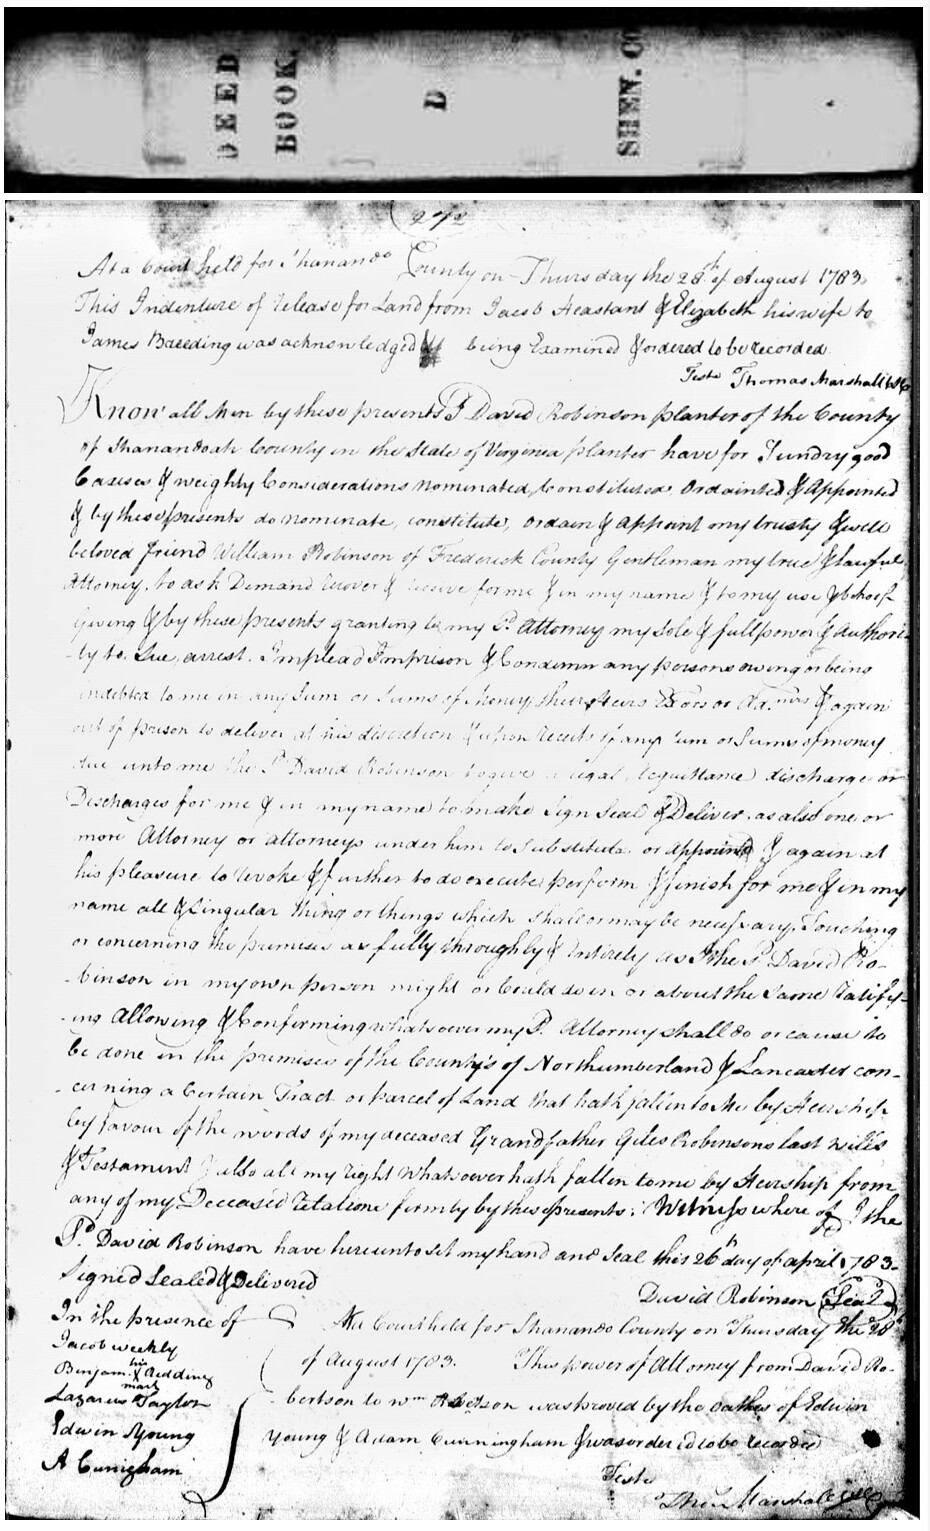 DEED
BOOK.
D
SHEN. CO
272
At a Court held for Shanando County on Thursday the 28th of August 1783.
This Indenture of release for Land from Jacob Heastant & Elizabeth his wife to
James Breeding was acknowledged being Examined & ordered to be recorded
Teste Thomas Marshall
Know all Men by these presents I David Robinson planter of the County
of Shanandoah County in the State of Virginia planter have for Sundry good
Causes & weighty Considerations nominated, Constituted, Ordainted & Appointed
& by these presents do nominate, constitute, ordain & appoint my trusty & well
beloved friend William Robinson of Frederick County Gentleman my true & lawful
Attorney, to ask Demand recover & receive for me & in my name & to my use & behoof
Giving & by these presents granting to my Sd. Attorney my Sole & full power & Authori-
-ty to Sue, arrest, Implead Imprison & Condemn any persons owing or being
indebted to me in any Sum or Sums of Money, their Heirs Exors or Admrs & again
out of prison to deliver at his discretion & upon receits of any Sum or Sums of money
due unto me the Sd David Robinson to give a legal Acquittance discharge or
Discharges for me & in my name to make Sign Seal & Deliver, as also one or
more Attorney or attorneys under him to Substitute or appoint & again at
his pleasure to revoke & further to do execute perform & finish for me & in my
name all & Singular thing or things which Shall or may be necessary, Touching
or concerning the premises as fully throughly & Entirely as I the Sd David Ro-
-binson in my own person might or Could do in or about the Same ratify-
-ing Allowing & Confirming whatsoever my Sd. Attorney shall do or cause to
be done in the premises of the County's of Northumberland & Lancaster con-
-cerning a Certain Tract or parcel of Land that hath fallen to Me by Heirship
by favour of the words of my deceased Grandfather Giles Robinsons last wills
& Testament & also all my right whatsoever hath fallen to me by Heirship from
any of my Deceased relations firmly by these presents: Witness where of I the
Sd David Robinson have hereunto set my hand and Seal this 26th day of april 1783.
Signed Sealed & Delivered
David Robinson (Seal)
In the presence of
Jacob weekly
Benjam. his X mark Redding
Lazarus Taylor
Edwin Young
A Cunigham
At a Court held for Shanando County on Thursday the 28th
of August 1783. This power of Attorney from David Ro-
-bertson to Wm was proved by the Oathes of Edwin
Young & Adam Cunningham & was ordered to be recorded
Teste
Thos Marshall